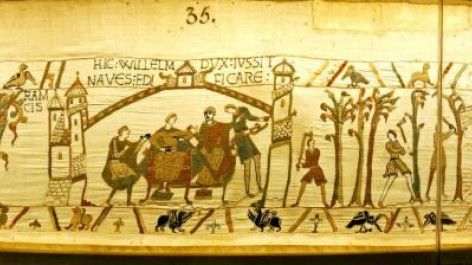 35.
HIC: WILLELM DVX: IVSSIT
NAVES: EDI FICARE: